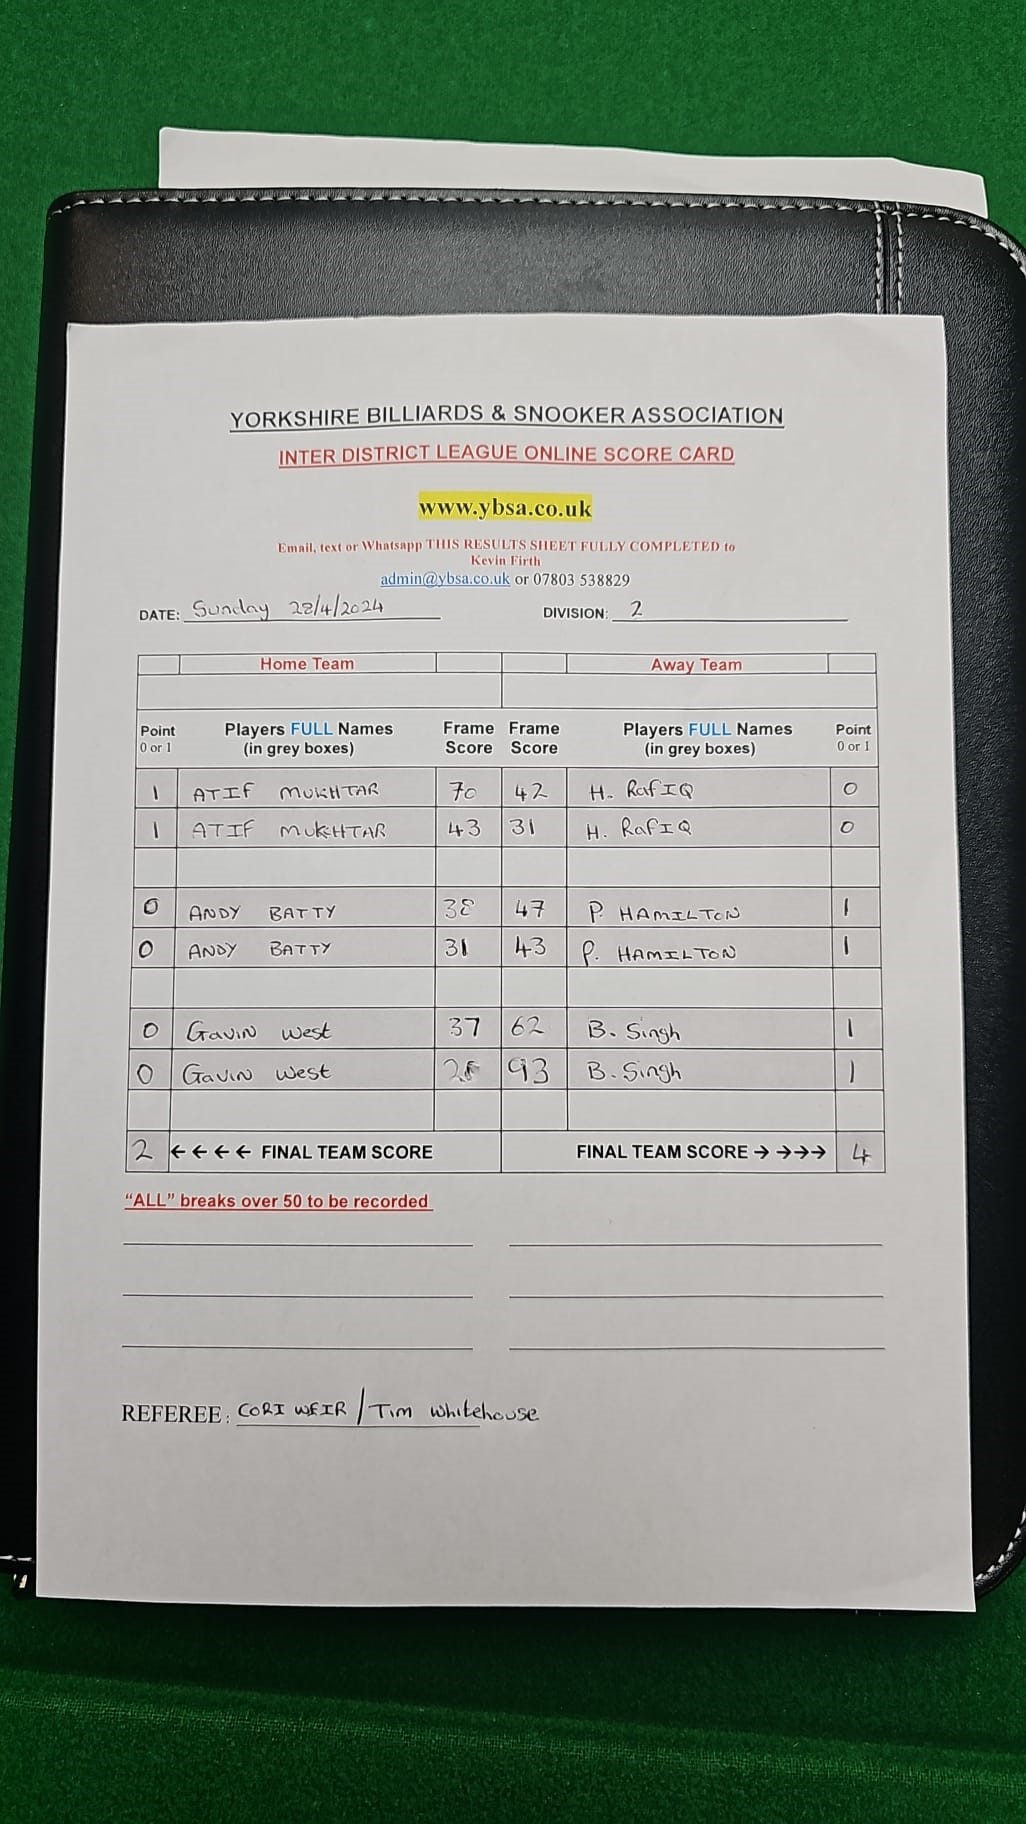 YORKSHIRE BILLIARDS & SNOOKER ASSOCIATION
INTER DISTRICT LEAGUE ONLINE SCORE CARD
www.ybsa.co.uk
Email, text or Whatsapp THIS RESULTS SHEET FULLY COMPLETED to
Kevin Firth
admin@ybsa.co.uk or 07803 538829
DATE: Sunday 28/4/2024 DIVISION: 2
Home Team Away Team
Point Players FULL Names Frame Frame Players FULL Names Point
0 or 1 (in grey boxes) Score Score (in grey boxes) 0 or 1
1 ATIF MUKHTAR 70 42 H. RafIQ 0
1 ATIF MUKHTAR 43 31 H. RafIQ 0
0 ANDY BATTY 38 47 P. HAMILTON 1
0 ANDY BATTY 31 43 P. HAMILTON 1
0 GAVIN West 37 62 B. Singh 1
0 GAVIN West 93 B. Singh 1
2 ←←←← FINAL TEAM SCORE FINAL TEAM SCORE →→→→ 4
"ALL" breaks over 50 to be recorded
REFEREE: CORI WEIR / Tim Whitehouse